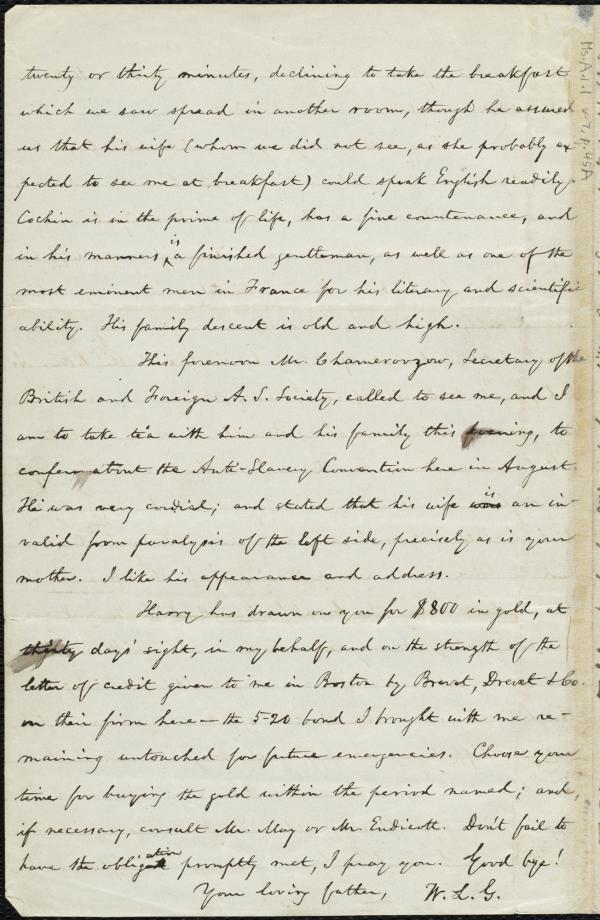 twenty or thirty minutes, declining to take the breakfast
which we saw spread in another room, though he assured
us that his wife (whom we did not see, as she probably ex-
pected to see me at breakfast) could speak English readily.
Cochin is in the prime of life, has a fine countenance, and
in his manners is a finished gentleman, as well as one of the
most eminent men in France for his literary and scientific
ability. His family descent is old and high.
This forenoon Mr. Chamerovzow, Secretary of the
British and Foreign A. S. Society, called to see me, and I
am to take tea with him and his family this evening, to
confer about the Anti-Slavery Convention here in August.
He was very cordial; and stated that his wife was is an in-
valid from paralysis of the left side, precisely as is your
mother. I like his appearance and address.
Harry has drawn on you for $800 in gold, at
thirty days' sight, in my behalf, and on the strength of the
letter of credit given to me in Boston by Brevet, Drevet & Co.
on their firm here — the 5-20 bond I brought with me re-
maining untouched for future emergencies. Choose your
time for buying the gold within the period named; and,
if necessary, consult Mr. May or Mr. Endicott. Don't fail to
have the obligation promptly met, I pray you. Good bye!
Your loving father, W. L. G.
Ms.A.1.1 v.7, p.45A